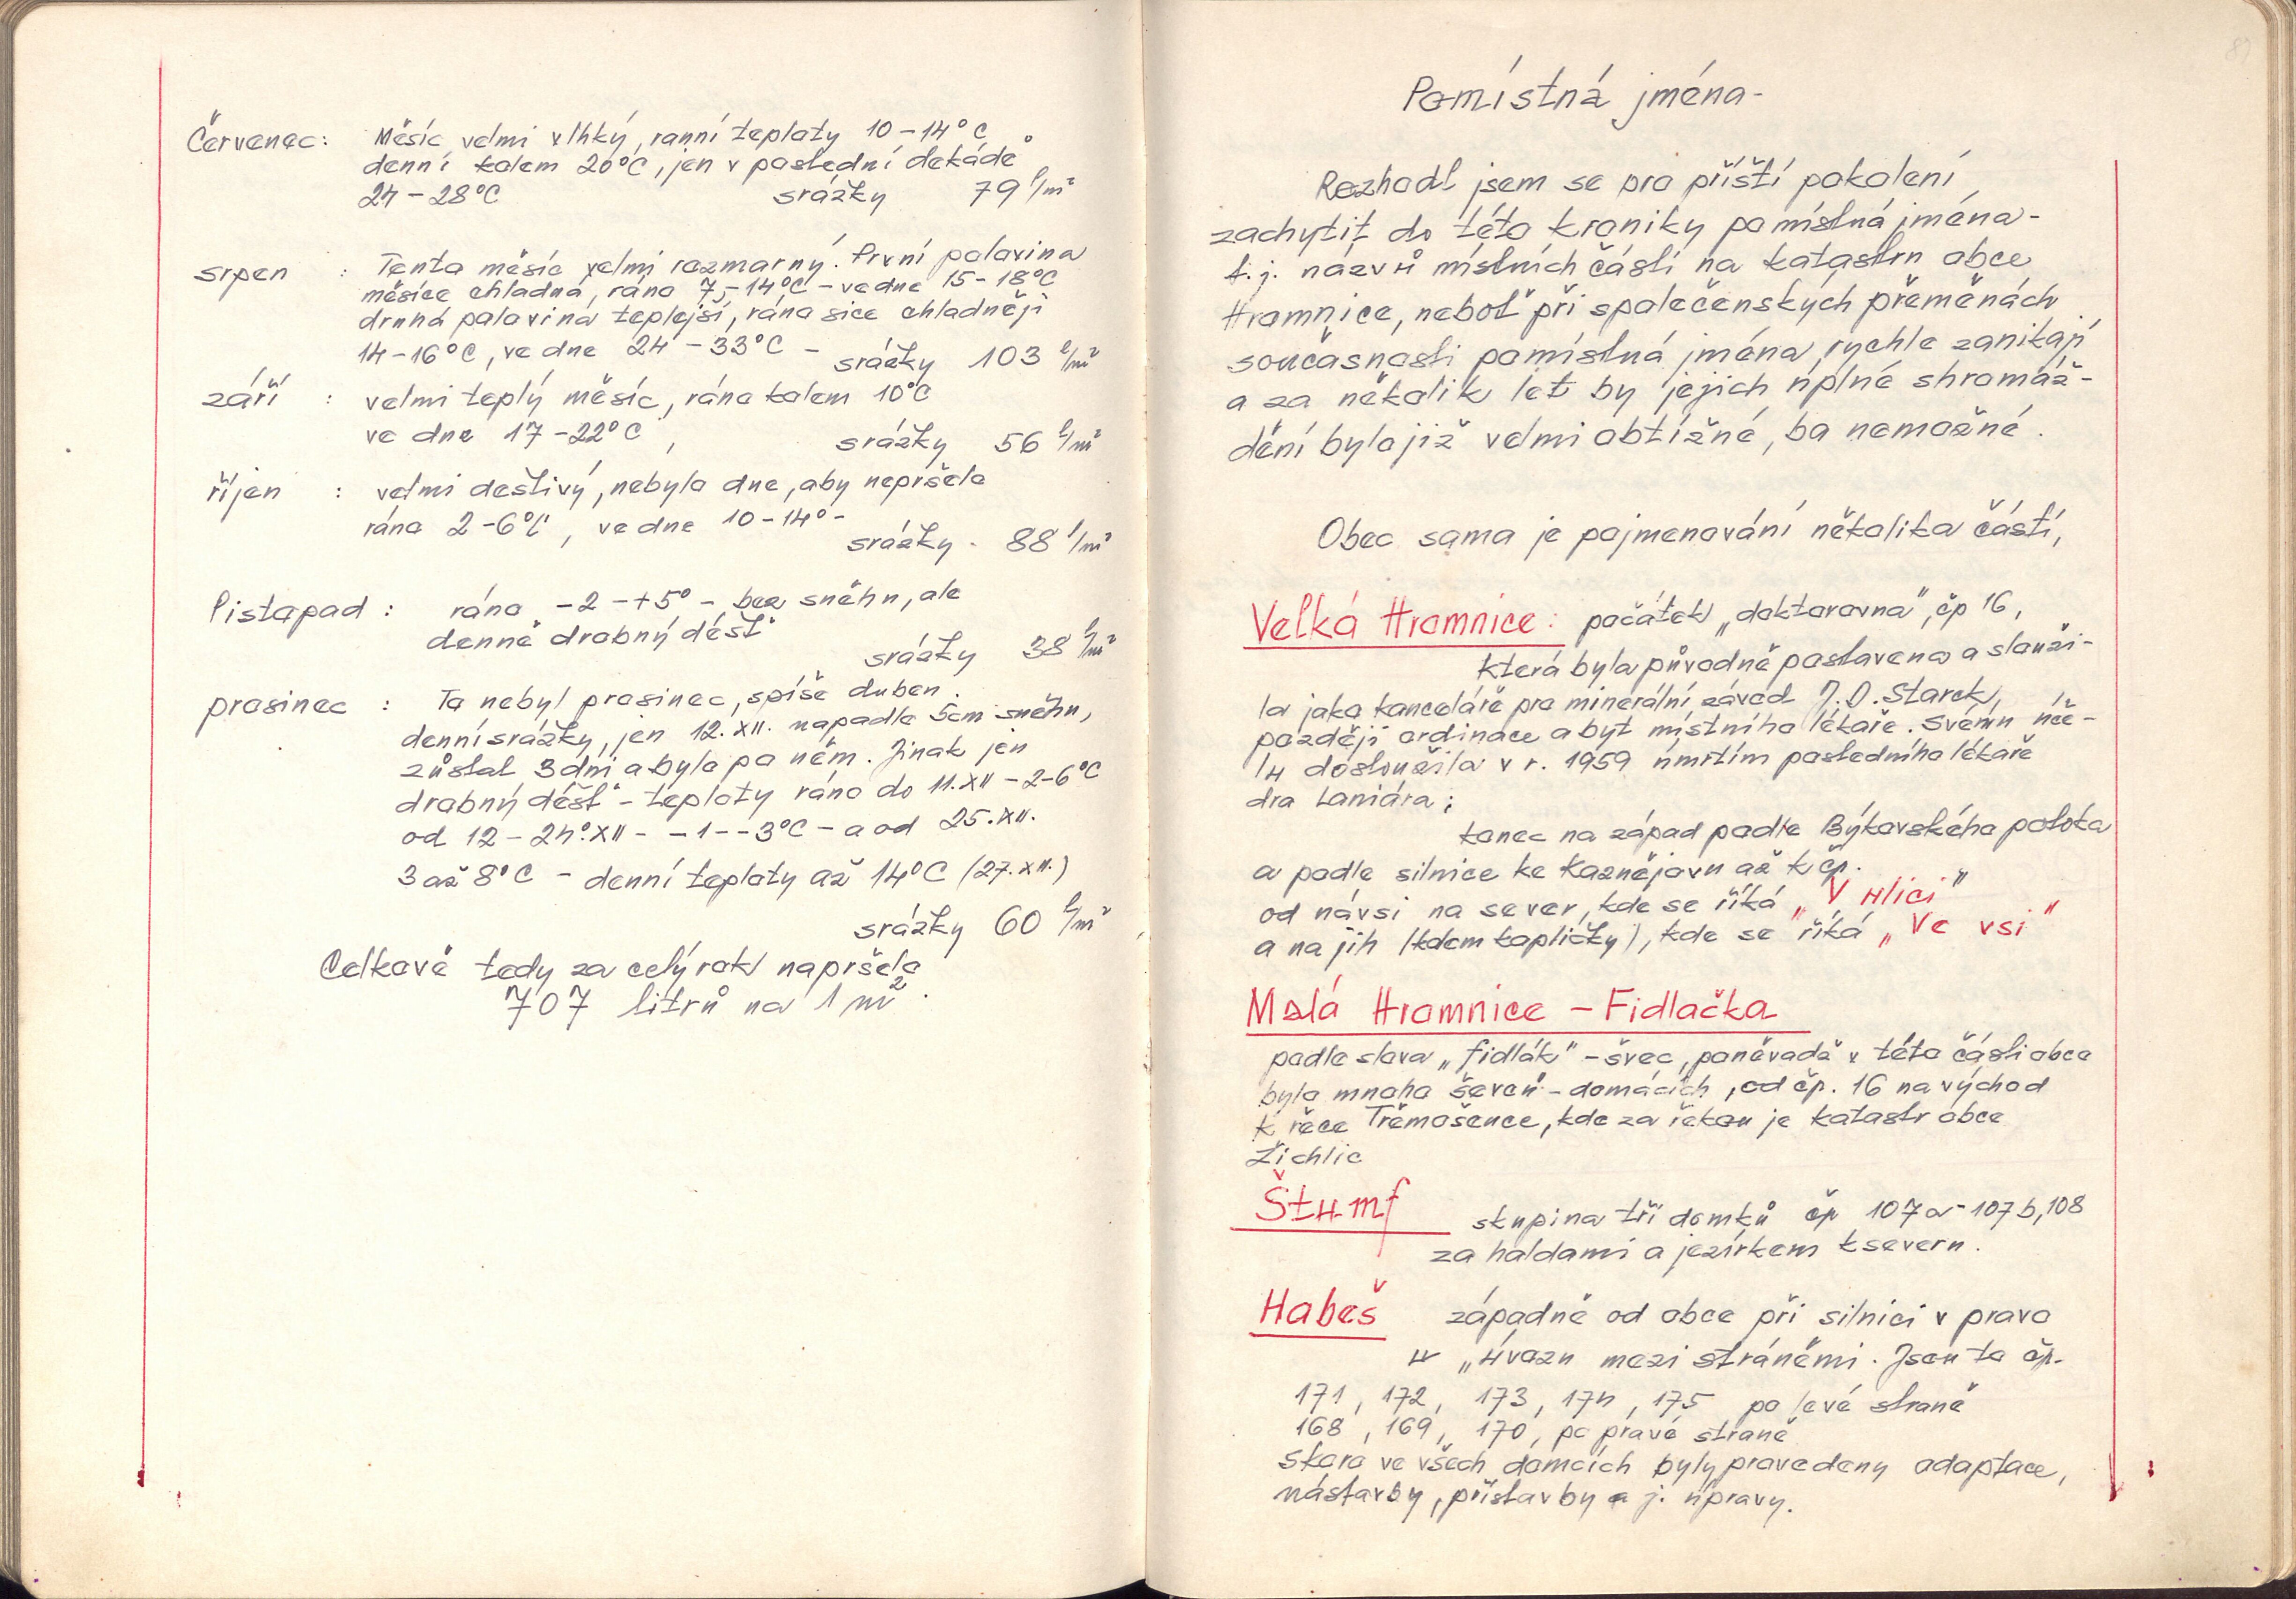 Červenec: Měsíc velmi vlhký, ranní teploty 10-14°C
denní kolem 20°C, jen v poslední dekádě
24-28°C srážky 79 l/m²
srpen : Tento měsíc velmi rozmarný. První polovina
měsíce chladná, ráno 7-14°C - ve dne 15-18°C
druhá polovina teplejší, rána sice chladněji
14-16°C, ve dne 24-33°C - srážky 103 l/m²
září : velmi teplý měsíc, ráno kolem 10°C
ve dne 17-22°C, srážky 56 l/m²
říjen : velmi deštivý, nebylo dne, aby nepršelo
ráno 2-6°C, ve dne 10-14° -
srážky - 88 l/m²
listopad : ráno -2-+5° - bez sněhu, ale
denně drobný déšť
srážky 38 l/m²
prosinec : To nebyl prosinec, spíše duben.
denní srážky, jen 12.XII. napadlo 5cm sněhu,
zůstal 3 dni a bylo po něm. Jinak jen
drobný déšť - teploty ráno do 11.XII - 2-6°C
od 12-24.XII - -1--3°C - a od 25.XII.
3 až 8°C - denní teploty až 14°C (27.XII.)
srážky 60 l/m²
Celkově tedy za celý rok napršelo
707 litrů na 1 m².
Pomístná jména-
Rozhodl jsem se pro příští pokolení
zachytit do této kroniky pomístná jména-
t.j. názvů místních částí na katastru obce
Hromnice, neboť při společenských přeměnách
současnosti pomístná jména rychle zanikají
a za několik let by jejich úplné shromáž-
dění bylo již velmi obtížné, ba nemožné.
Obec sama je pojmenování několika částí,
Velká Hromnice: počátek „doktorovna", čp 16,
která byla původně postavena a slouži-
la jako kanceláře pro minerální závod J.D. Starck,
později ordinace a byt místního lékaře. Svému úče-
lu dosloužila v r. 1959 úmrtím posledního lékaře
dra Laniára;
konec na západ podle Býkovského potoka
a podle silnice ke Kaznějovu až k čp.
od návsi na sever, kde se říká „V Ulici"
a na jih (kolem kapličky), kde se říká „Ve vsi"
Malá Hromnice - Fidlačka
podle slova „fidlák" - švec, poněvadž v této části obce
bylo mnoho ševců - domácích, od čp. 16 na východ
k řece Třemošence, kde za řekou je katastr obce
Žichlic
Štumf skupina tří domků čp 107a-107b, 108
za haldami a jezírkem k severu.
Habeš západně od obce při silnici v pravo
„Úvozu mezi stráněmi. Jsou to čp.
171, 172, 173, 174, 175 po levé straně
168, 169, 170, po pravé straně
Skoro ve všech domcích byly provedeny adaptace,
nástavby, přístavby a j. úpravy.